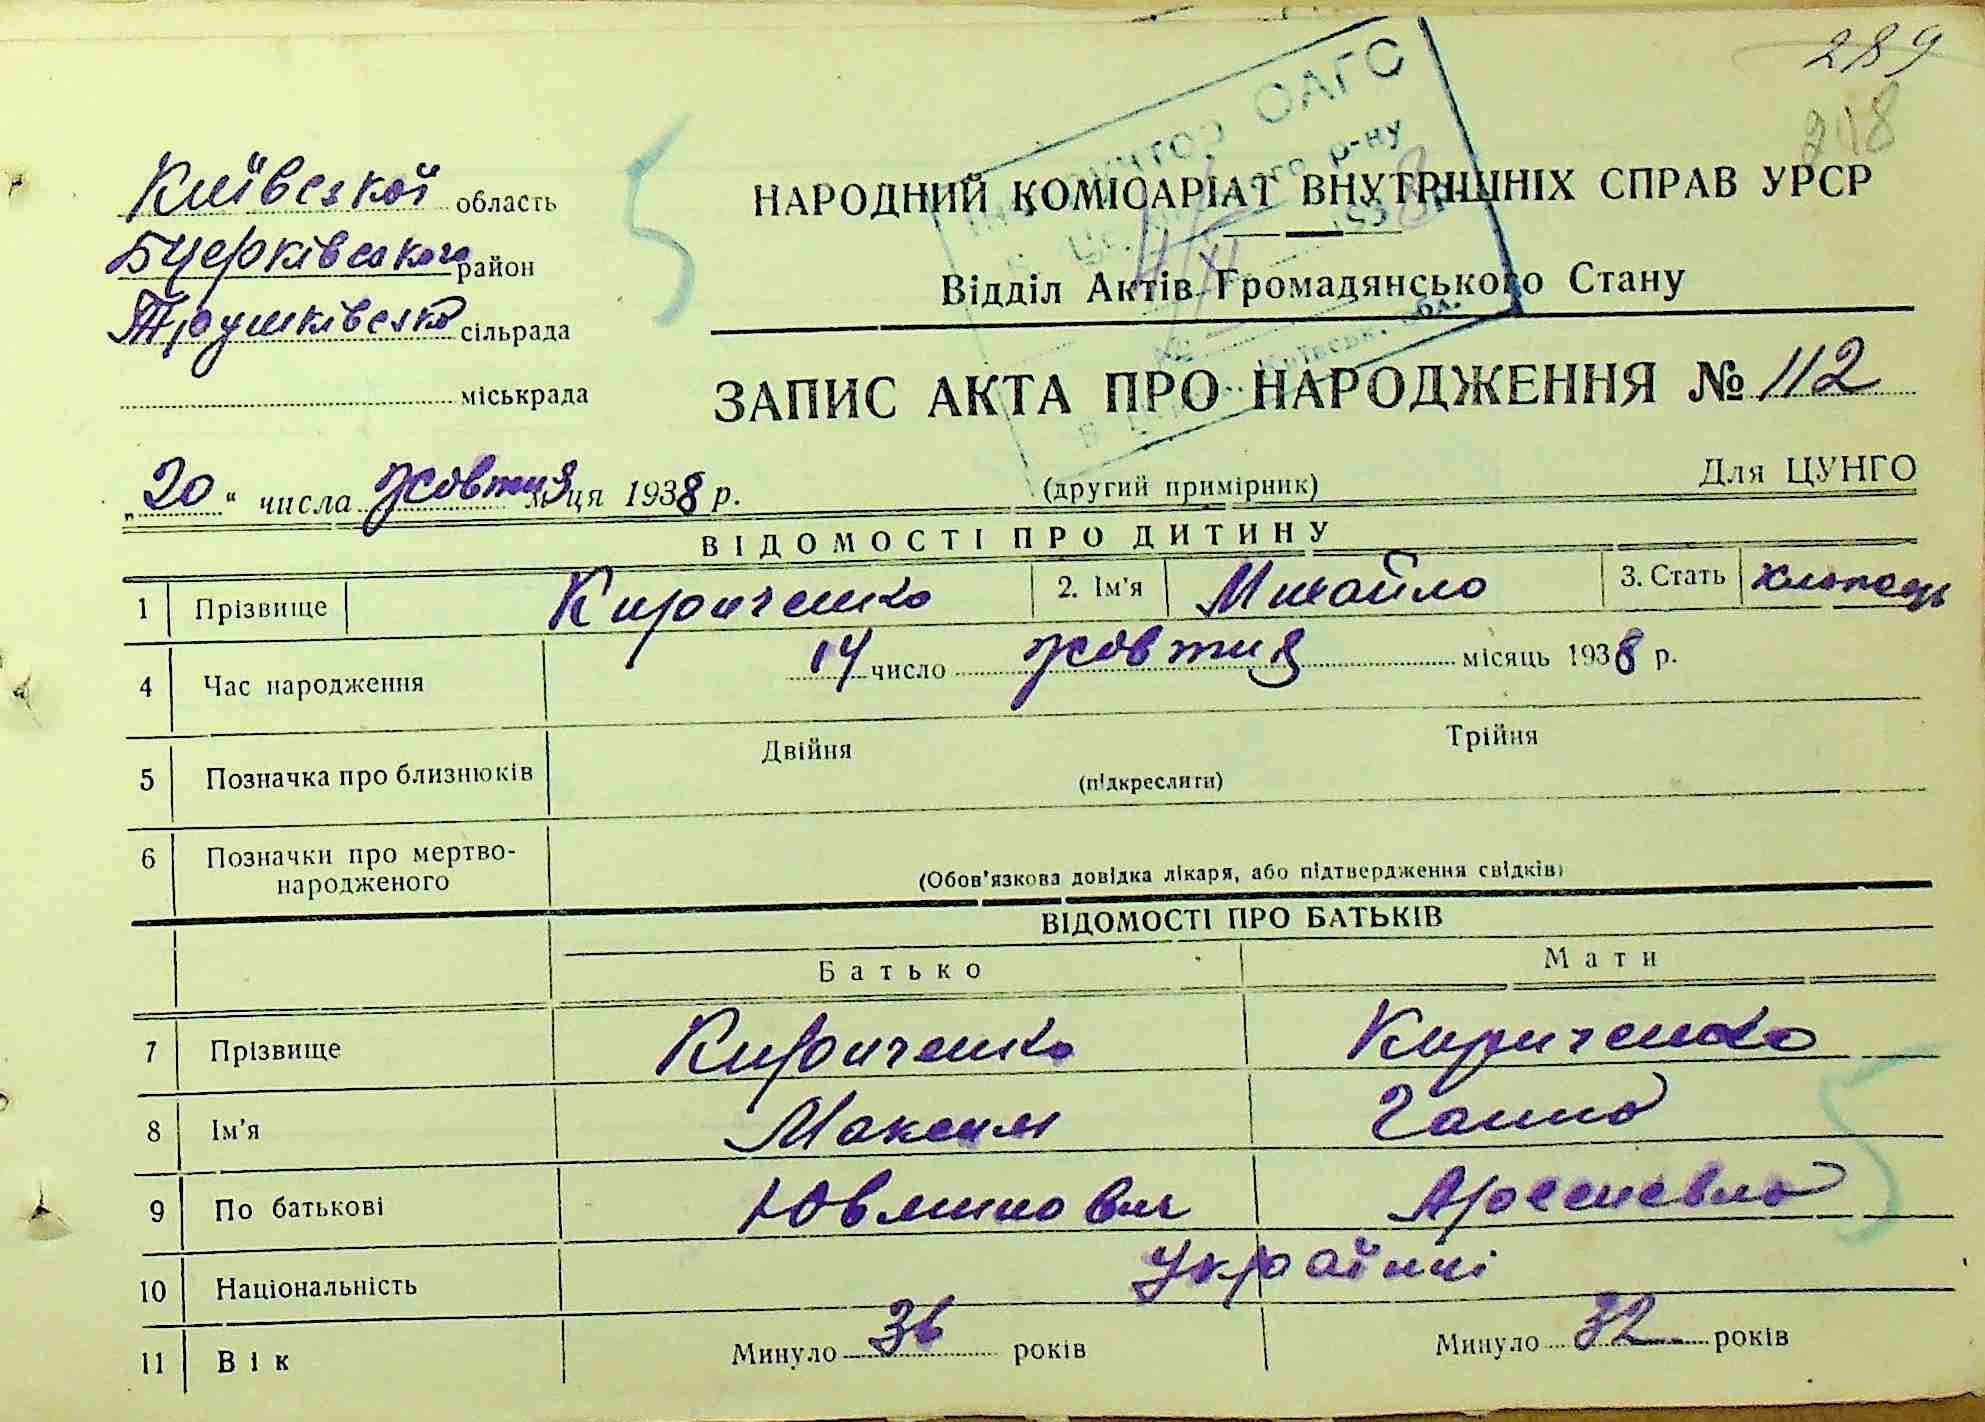 289
218
Київської область
Бцерківського район
Трушківська сільрада
міськрада
5
ІНСПЕКТОР ОАГС
р-ну
4/XI 1938
Київськ. обл.
НАРОДНИЙ КОМІСАРІАТ ВНУТРІШНІХ СПРАВ УРСР
Відділ Актів Громадянського Стану
ЗАПИС АКТА ПРО НАРОДЖЕННЯ № 112
„20“ числа жовтня м-ця 1938 р.
(другий примірник)
Для ЦУНГО
ВІДОМОСТІ ПРО ДИТИНУ
1 Прізвище Кириченко 2. Ім'я Михайло 3. Стать хлопець
4 Час народження 14 число жовтня місяць 1938 р.
5 Позначка про близнюків Двійня Трійня
(підкреслити)
6 Позначки про мертво-
народженого
(Обов'язкова довідка лікаря, або підтвердження свідків)
ВІДОМОСТІ ПРО БАТЬКІВ
Батько Мати
7 Прізвище Кириченко Кириченко
8 Ім'я Максим Ганна
9 По батькові Арсенєвна
10 Національність Українці
11 Вік Минуло 36 років Минуло 32 років
5